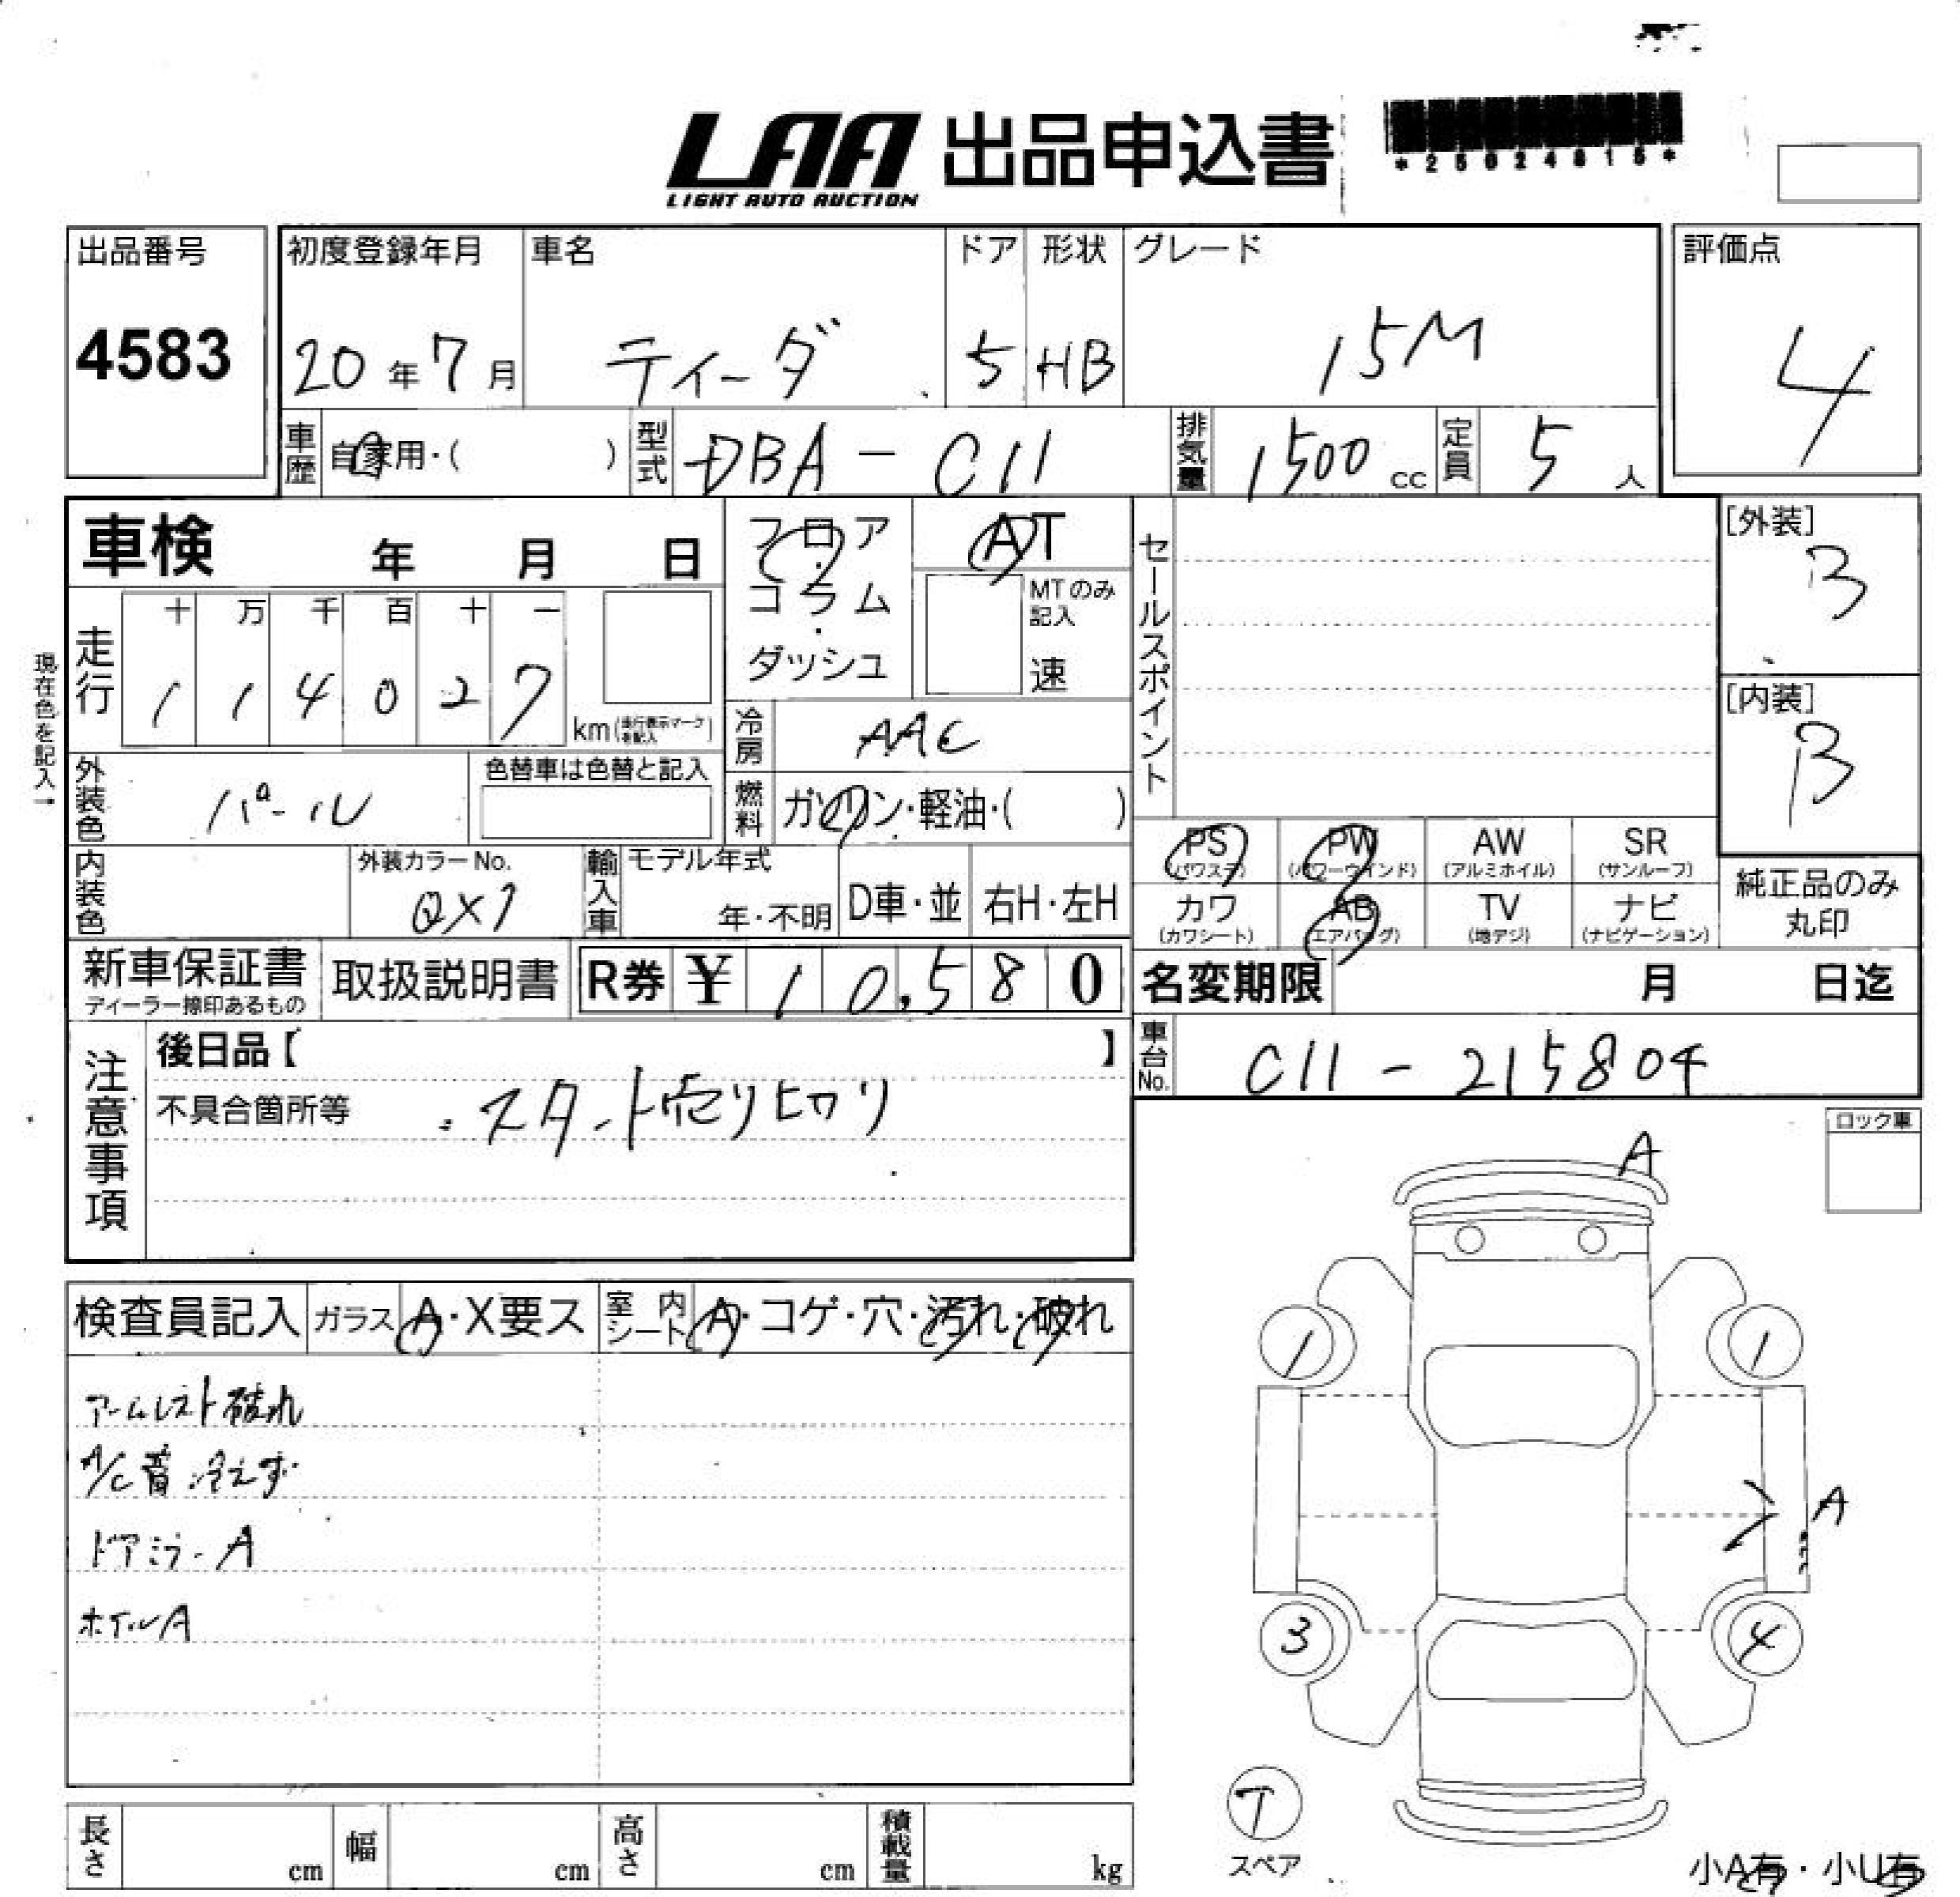 LAA 出品申込書
LIGHT AUTO AUCTION
*25024815*
出品番号
4583
初度登録年月 車名 ドア 形状 グレード
20年7月 ティーダ 5 HB 15M
評価点
4
車歴 自家用・( ) 型式 DBA-C11 排気量 1500cc 定員 5人
車検 年 月 日
フロア・コラム・ダッシュ
AT
MTのみ記入
速
セールスポイント
[外装]
B
[内装]
B
現在色を記入→
走行
十 万 千 百 十 一
1 1 4 0 2 7 km(走行表示マークを記入)
冷房 AAC
外装色 パール 色替車は色替と記入
燃料 ガソリン・軽油・( )
内装色 外装カラーNo. QX1
輸入車 モデル年式 年・不明 D車・並 右H・左H
PS(パワステ) PW(パワーウインド) AW(アルミホイル) SR(サンルーフ)
カワ(カワシート) AB(エアバッグ) TV(地デジ) ナビ(ナビゲーション)
純正品のみ丸印
新車保証書 ディーラー捺印あるもの 取扱説明書 R券 ¥ 10,580
名変期限 月 日迄
車台No. C11-215804
注意事項
後日品【 】
不具合箇所等 スタート売り切り
ロック車
A
検査員記入 ガラス A・X要ス 室内シート A・コゲ・穴・汚れ・破れ
アームレスト破れ
A/C 冷えず
ドアミラーA
ホイルA
1 1
A
3 4
T
スペア
長さ cm 幅 cm 高さ cm 積載量 kg
小A有・小U有